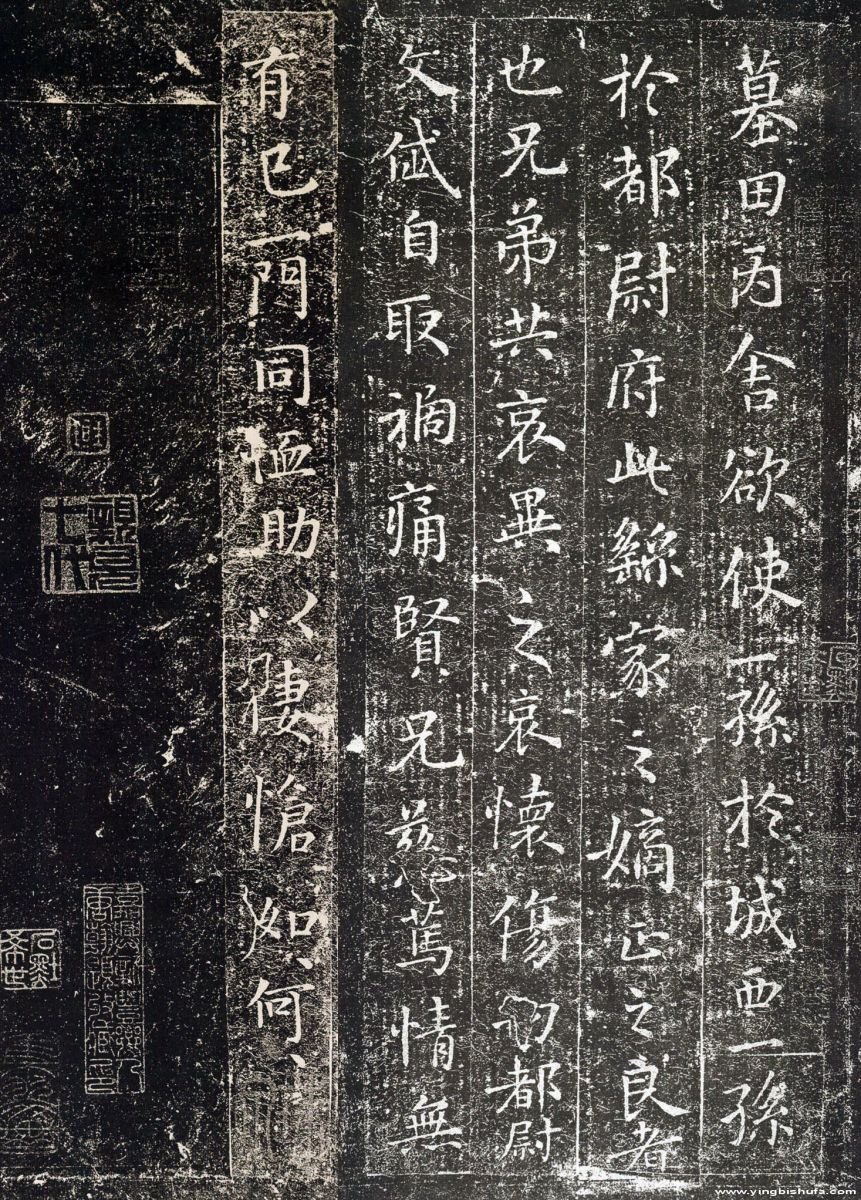 墓田丙舍欲使一孫於城西一孫
於都尉府此繇家之嫡正之良者
也兄弟共哀異之哀懷傷切都尉
文岱自取禍痛賢兄慈篤情無
有已一門同恤助以悽愴如何、
七代
www.yingbishufa.com